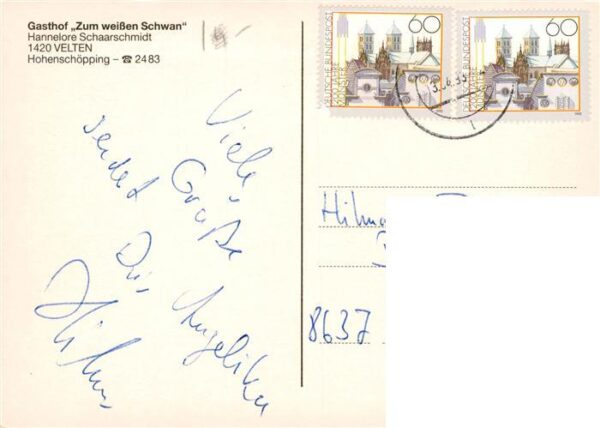 Gasthof „Zum weißen Schwan“
Hannelore Schaarschmidt
1420 VELTEN
Hohenschöpping – ☎ 2483
Viele
Grüße
sendet Dir Angelika
60
DEUTSCHE BUNDESPOST
60
DEUTSCHE BUNDESPOST
8637